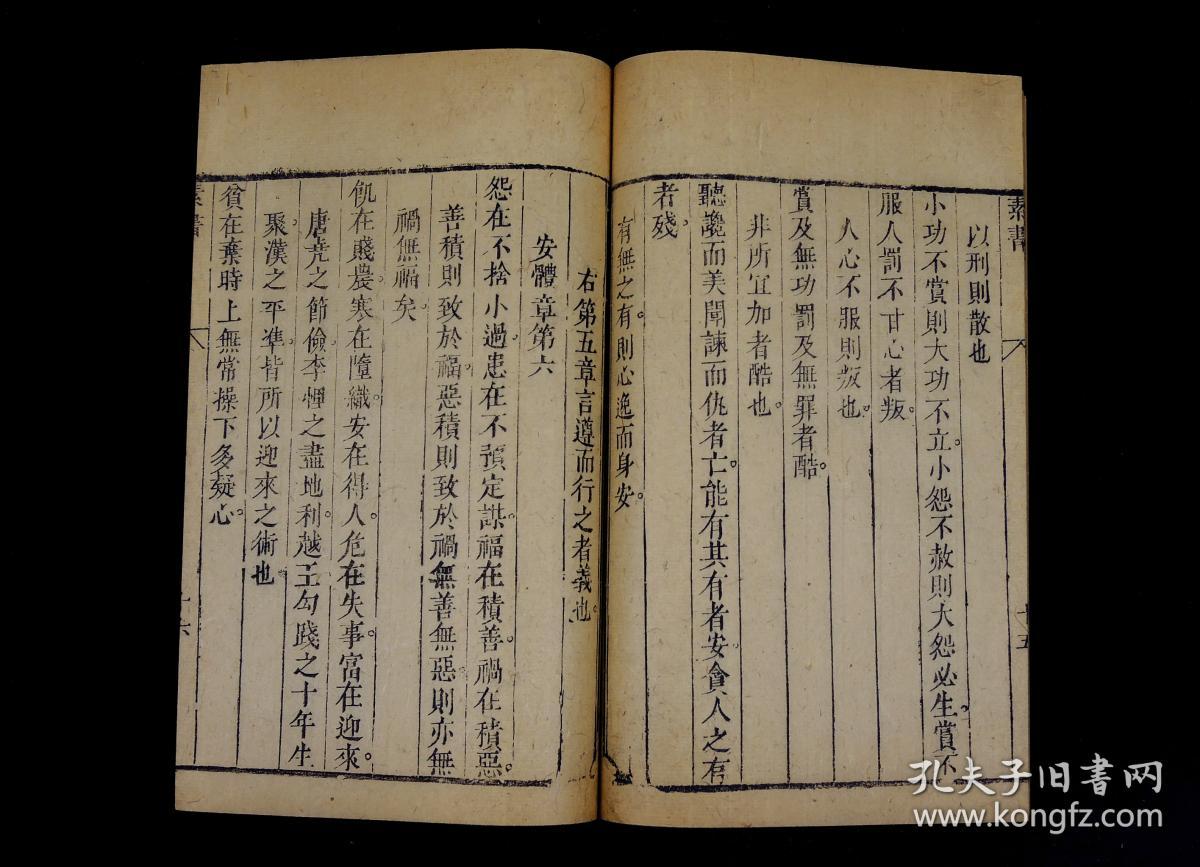 素書
以刑則散也
小功不賞則大功不立。小怨不赦則大怨必生。賞不
服人罰不甘心者叛。
人心不服則叛也。
賞及無功罰及無罪者酷。
非所宜加者酷也。
聽讒而美聞諫而仇者亡。能有其有者安貪人之有
者殘。
有無之有。則心逸而身安。
右第五章言遵而行之者義也。
安體章第六
怨在不捨小過。患在不預定謀。福在積善。禍在積惡。
善積則致於福。惡積則致於禍。無善無惡則亦無
禍無福矣。
飢在賤農。寒在墮織。安在得人。危在失事。富在迎來。
唐堯之節儉。李悝之盡地利。越王勾踐之十年生
聚。漢之平準。皆所以迎來之術也
貧在棄時上無常操下多疑心。
素書
十六
孔夫子旧书网
www.kongfz.com